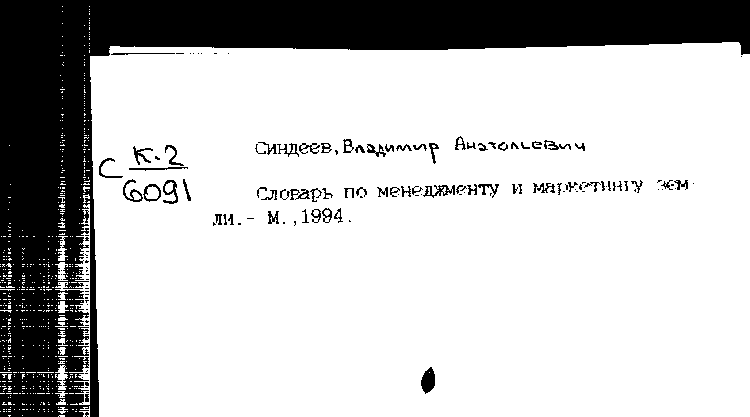 Синдеев, Владимир Анатольевич
С К-2
6091
Словарь по менеджменту и маркетингу зем-
ли.- М.,1994.